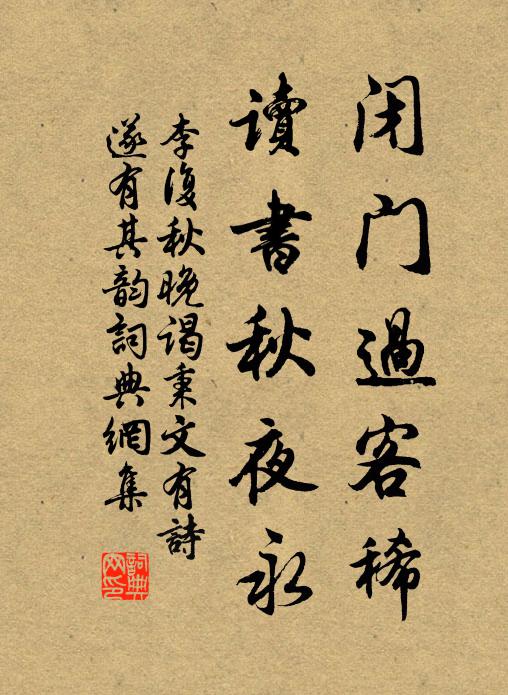 闭门過客稀
讀書秋夜永
李復秋晚谒秉文有詩
遂有其韵詞典網集
詞典
网印